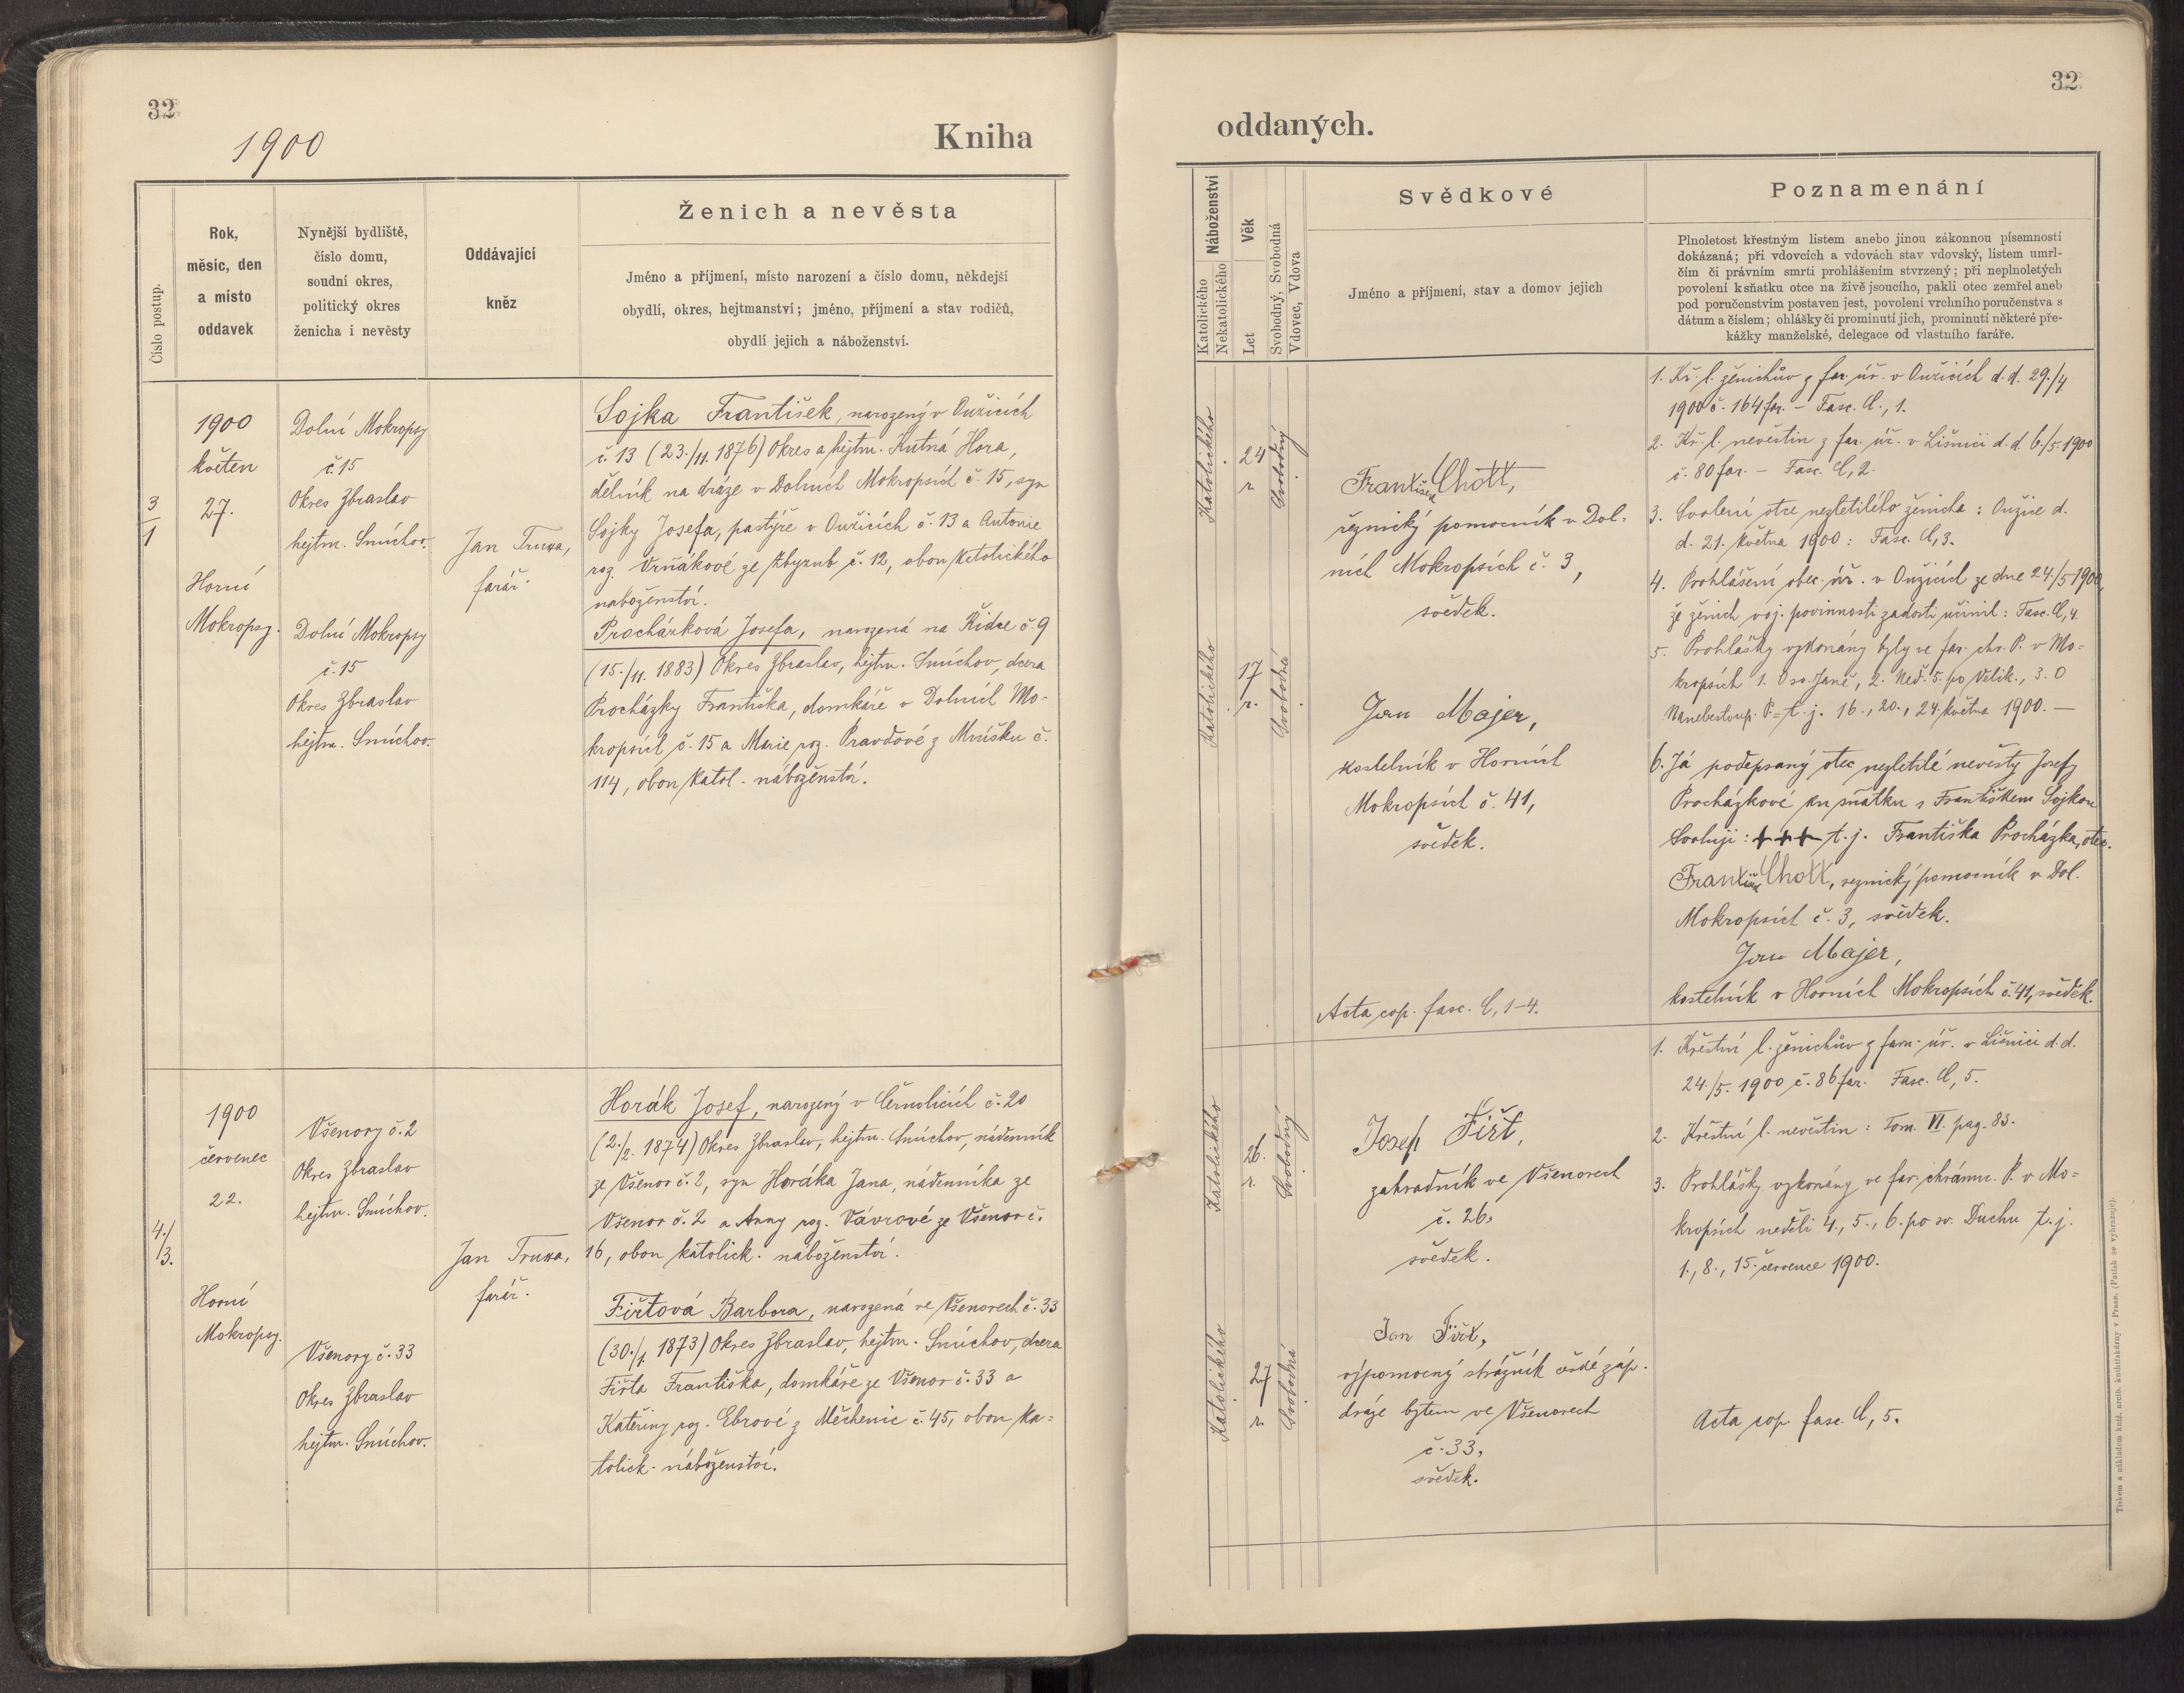 32
1900
Kniha
Číslo postup.
Rok,
měsíc, den
a místo
oddavek
Nynější bydliště,
číslo domu,
soudní okres,
politický okres
ženicha i nevěsty
Oddávající
kněz
Ženich a nevěsta
Jméno a příjmení, místo narození a číslo domu, někdejší
obydlí, okres, hejtmanství; jméno, příjmení a stav rodičů,
obydlí jejich a náboženství.
3
1
1900
květen
27.
Horní
Mokropsy.
Dolní Mokropsy
č. 15
Okres Zbraslav
hejtm. Smíchov.
Dolní Mokropsy
č. 15
Okres Zbraslav
hejtm. Smíchov.
Jan
farář.
Sojka František, narozený v Onžicích
č. 13 (23./11. 1876) Okres a hejtm. Kutná Hora,
dělník na dráze v Dolních Mokropsích č. 15, syn
Sojky Josefa, pastýře v Onžicích č. 13 a Antonie
roz. Vrňákové ze Zbyzub č. 12, obou katolického
náboženství.
Procházková Josefa, narozená na Řidce č. 9
(15./11. 1883) Okres Zbraslav, hejtm. Smíchov, dcera
Procházky Františka, domkáře v Dolních Mo-
kropsích č. 15 a Marie roz. Pravdové z Mníšku č.
114, obou katol. náboženství.
4./
3.
1900
červenec
22.
Horní
Mokropsy.
Všenory č. 2
Okres Zbraslav
hejtm. Smíchov.
Všenory č. 33
Okres Zbraslav
hejtm. Smíchov.
Jan
farář.
Horák Josef, narozený v Černolicích č. 20
(2./2. 1874) Okres Zbraslav, hejtm. Smíchov, nádenník
ze Všenor č. 2, syn Horáka Jana, nádenníka ze
Všenor č. 2 a Anny roz. Vávrové ze Všenor č.
16, obou katolick. náboženství.
Fiřtová Barbora, narozená ve Všenorech č. 33
(30./1. 1873) Okres Zbraslav, hejtm. Smíchov, dcera
Fiřta Františka, domkáře ze Všenor č. 33 a
Kateřiny roz. Ebrové z Měchenic č. 45, obou ka=
tolick. náboženství.
32
oddaných.
Náboženství
Katolického
Nekatolického
Věk
Let
Svobodný, Svobodná
Vdovec, Vdova
Svědkové
Jméno a příjmení, stav a domov jejich
Poznamenání
Plnoletost křestným listem anebo jinou zákonnou písemností
dokázaná; při vdovcích a vdovách stav vdovský, listem umrl-
čím či právním smrti prohlášením stvrzený; při neplnoletých
povolení k sňatku otce na živě jsoucího, pakli otec zemřel aneb
pod poručenstvím postaven jest, povolení vrchního poručenstva s
dátum a číslem; ohlášky či prominutí jich, prominutí některé pře-
kážky manželské, delegace od vlastního faráře.
Katolického
24
r.
Svobodný
Katolického
17
r.
Svobodná
František Chott,
řeznický pomocník v Dol-
ních Mokropsích č. 3,
svědek.
Jan Majer,
kostelník v Horních
Mokropsích č. 41,
svědek.
Acta cop. fasc. C, 1-4.
1. Kř. l. ženichův z far. úř. v Onžicích d. d. 29./4.
1900 č. 164 far. – Fasc. C., 1.
2. Kř. l. nevěstin z far. úř. v Líšnici d. d. 6./5. 1900
č. 80 far. – Fasc. C, 2.
3. Svolení otce nezletilého ženicha: Onžice d.
d. 21. května 1900: Fasc. C, 3.
4. Prohlášení obec. úř. v Onžicích ze dne 24./5 1900,
že ženich voj. povinnosti zadosti učinil: Fasc. C, 4.
5. Prohlášky vykonány byly ve far. chr. P. v Mo=
kropsích 1. O sv. Janě, 2. Ned. 5. po Velik., 3. O
Nanebevstoup. P. = t. j. 16., 20., 24. května 1900. —
6. Já podepsaný otec nezletilé nevěsty Josefy
Procházkové ku sňatku s Františkem Sojkou
svoluji: +++ t. j. Františka Procházka, otec.
František Chott, řeznický pomocník v Dol.
Mokropsích č. 3, svědek.
Jan Majer,
kostelník v Horních Mokropsích č. 41, svědek.
Katolického
26.
r.
Svobodný
Katolického
27
r.
Svobodná
Josef Fiřt,
zahradník ve Všenorech
č. 26,
svědek.
Jan Fiřt,
výpomocný strážník české záp.
dráze bytem ve Všenorech
č. 33,
svědek.
1. Křestní l. ženichův z farn. úř. v Líšnici d. d.
24./5. 1900 č. 86 far. Fasc. C, 5.
2. Křestní l. nevěstin: Tom. VI. pag. 83.
3. Prohlášky vykonány ve far. chrámu P. v Mo=
kropsích neděli 4., 5., 6. po sv. Duchu t. j.
1., 8., 15. července 1900.
Acta cop. fasc. C, 5.
Tiskem a nákladem kníž. arcib. knihtiskárny v Praze. (Patisk se vyhrazuje).